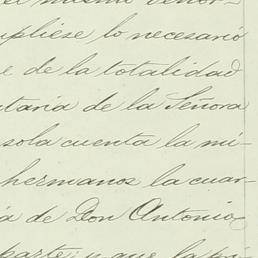 el mismo Señor-
upliese lo necesario
e de la totalidad
taria de la Señora
sola cuenta la mi-
hermanos la cuar-
a de Don Antonio
parte; y que la pri